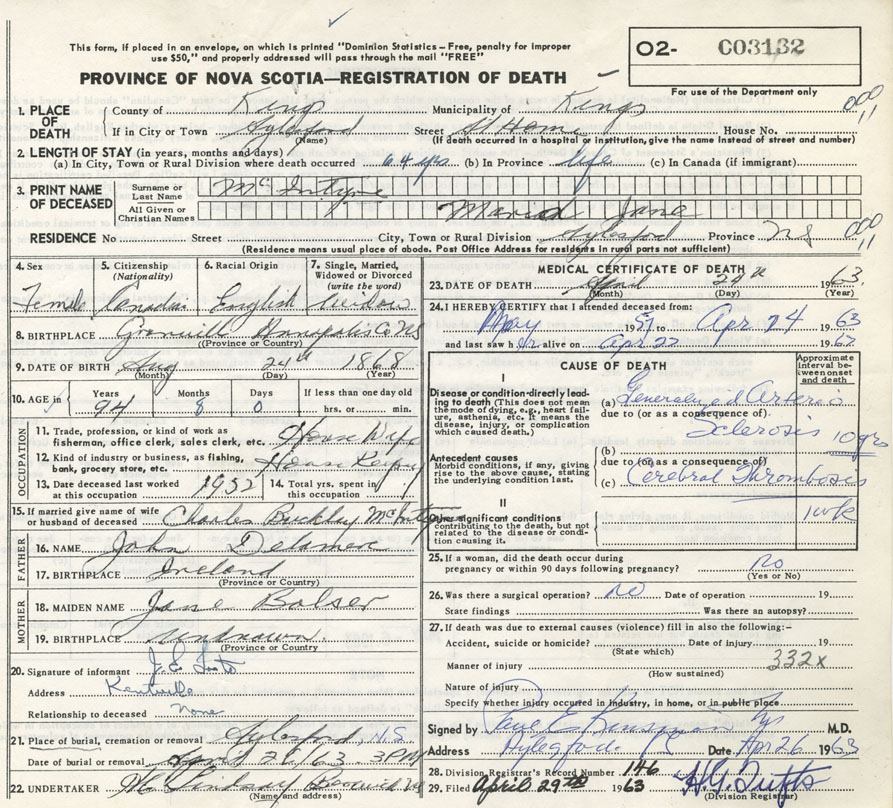 This form, if placed in an envelope, on which is printed "Dominion Statistics – Free, penalty for improper
use $50," and properly addressed will pass through the mail "FREE"
PROVINCE OF NOVA SCOTIA—REGISTRATION OF DEATH
O2- C03132
For use of the Department only
1. PLACE OF DEATH County of Kings Municipality of Kings
If in City or Town Aylesford Street At Home House No.
(Name) (If death occurred in a hospital or institution, give the name instead of street and number)
2. LENGTH OF STAY (in years, months and days)
(a) In City, Town or Rural Division where death occurred 64 yrs (b) In Province life (c) In Canada (if immigrant)
3. PRINT NAME OF DECEASED Surname or Last Name McIntyre
All Given or Christian Names Maria Jane
RESIDENCE No Street City, Town or Rural Division Aylesford Province NS
(Residence means usual place of abode. Post Office Address for residents in rural parts not sufficient)
4. Sex Female
5. Citizenship (Nationality) Canadian
6. Racial Origin English
7. Single, Married, Widowed or Divorced (write the word) Widow
8. BIRTHPLACE Granville Annapolis Co NS
(Province or Country)
9. DATE OF BIRTH Aug 24th 1868
(Month) (Day) (Year)
10. AGE in Years 94 Months 8 Days 0 If less than one day old hrs. or min.
OCCUPATION
11. Trade, profession, or kind of work as fisherman, office clerk, sales clerk, etc. House Wife
12. Kind of industry or business, as fishing, bank, grocery store, etc. House Keeping
13. Date deceased last worked at this occupation 1952
14. Total yrs. spent in this occupation
15. If married give name of wife or husband of deceased Charles Buckley McIntyre
FATHER
16. NAME John
17. BIRTHPLACE Ireland
(Province or Country)
MOTHER
18. MAIDEN NAME Jane Balser
19. BIRTHPLACE unknown
(Province or Country)
20. Signature of informant J.E.
Address Kentville
Relationship to deceased None
21. Place of burial, cremation or removal Aylesford, N.S.
Date of burial or removal April 26/63 3 PM
22. UNDERTAKER Lindsay Berwick NS
(Name and address)
MEDICAL CERTIFICATE OF DEATH
23. DATE OF DEATH April 24th 1963
(Month) (Day) (Year)
24. I HEREBY CERTIFY that I attended deceased from:
May 1957 to Apr 24 1963
and last saw her alive on Apr 22 19
CAUSE OF DEATH
Approximate interval between onset and death
I
Disease or condition directly leading to death (This does not mean the mode of dying, e.g., heart failure, asthenia, etc. It means the disease, injury, or complication which caused death.)
(a) Generalized Arterio
due to (or as a consequence of)
Sclerosis 10 yrs
Antecedent causes
Morbid conditions, if any, giving rise to the above cause, stating the underlying condition last.
(b)
due to (or as a consequence of)
(c) Cerebral Thrombosis
1 wk
II
Other significant conditions contributing to the death, but not related to the disease or condition causing it.
25. If a woman, did the death occur during pregnancy or within 90 days following pregnancy? No
(Yes or No)
26. Was there a surgical operation? NO Date of operation 19
State findings Was there an autopsy?
27. If death was due to external causes (violence) fill in also the following:–
Accident, suicide or homicide? Date of injury 19
(State which)
Manner of injury 332x
(How sustained)
Nature of injury
Specify whether injury occurred in industry, in home, or in public place
Signed by Paul E Kinsman M.D.
Address Aylesford Date Apr 26 1963
28. Division Registrar's Record Number 146
29. Filed April 29th 1963 H.G. Tufts
(Division Registrar)